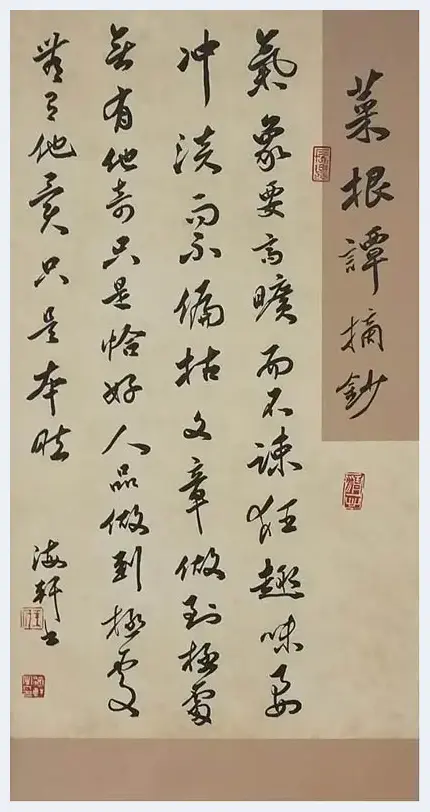 菜根譚摘鈔
氣象要高曠而不疎狂趣味要
冲淡而不偏枯文章做到極處
無有他奇只是恰好人品做到極處
無有他異只是本然
海軒書